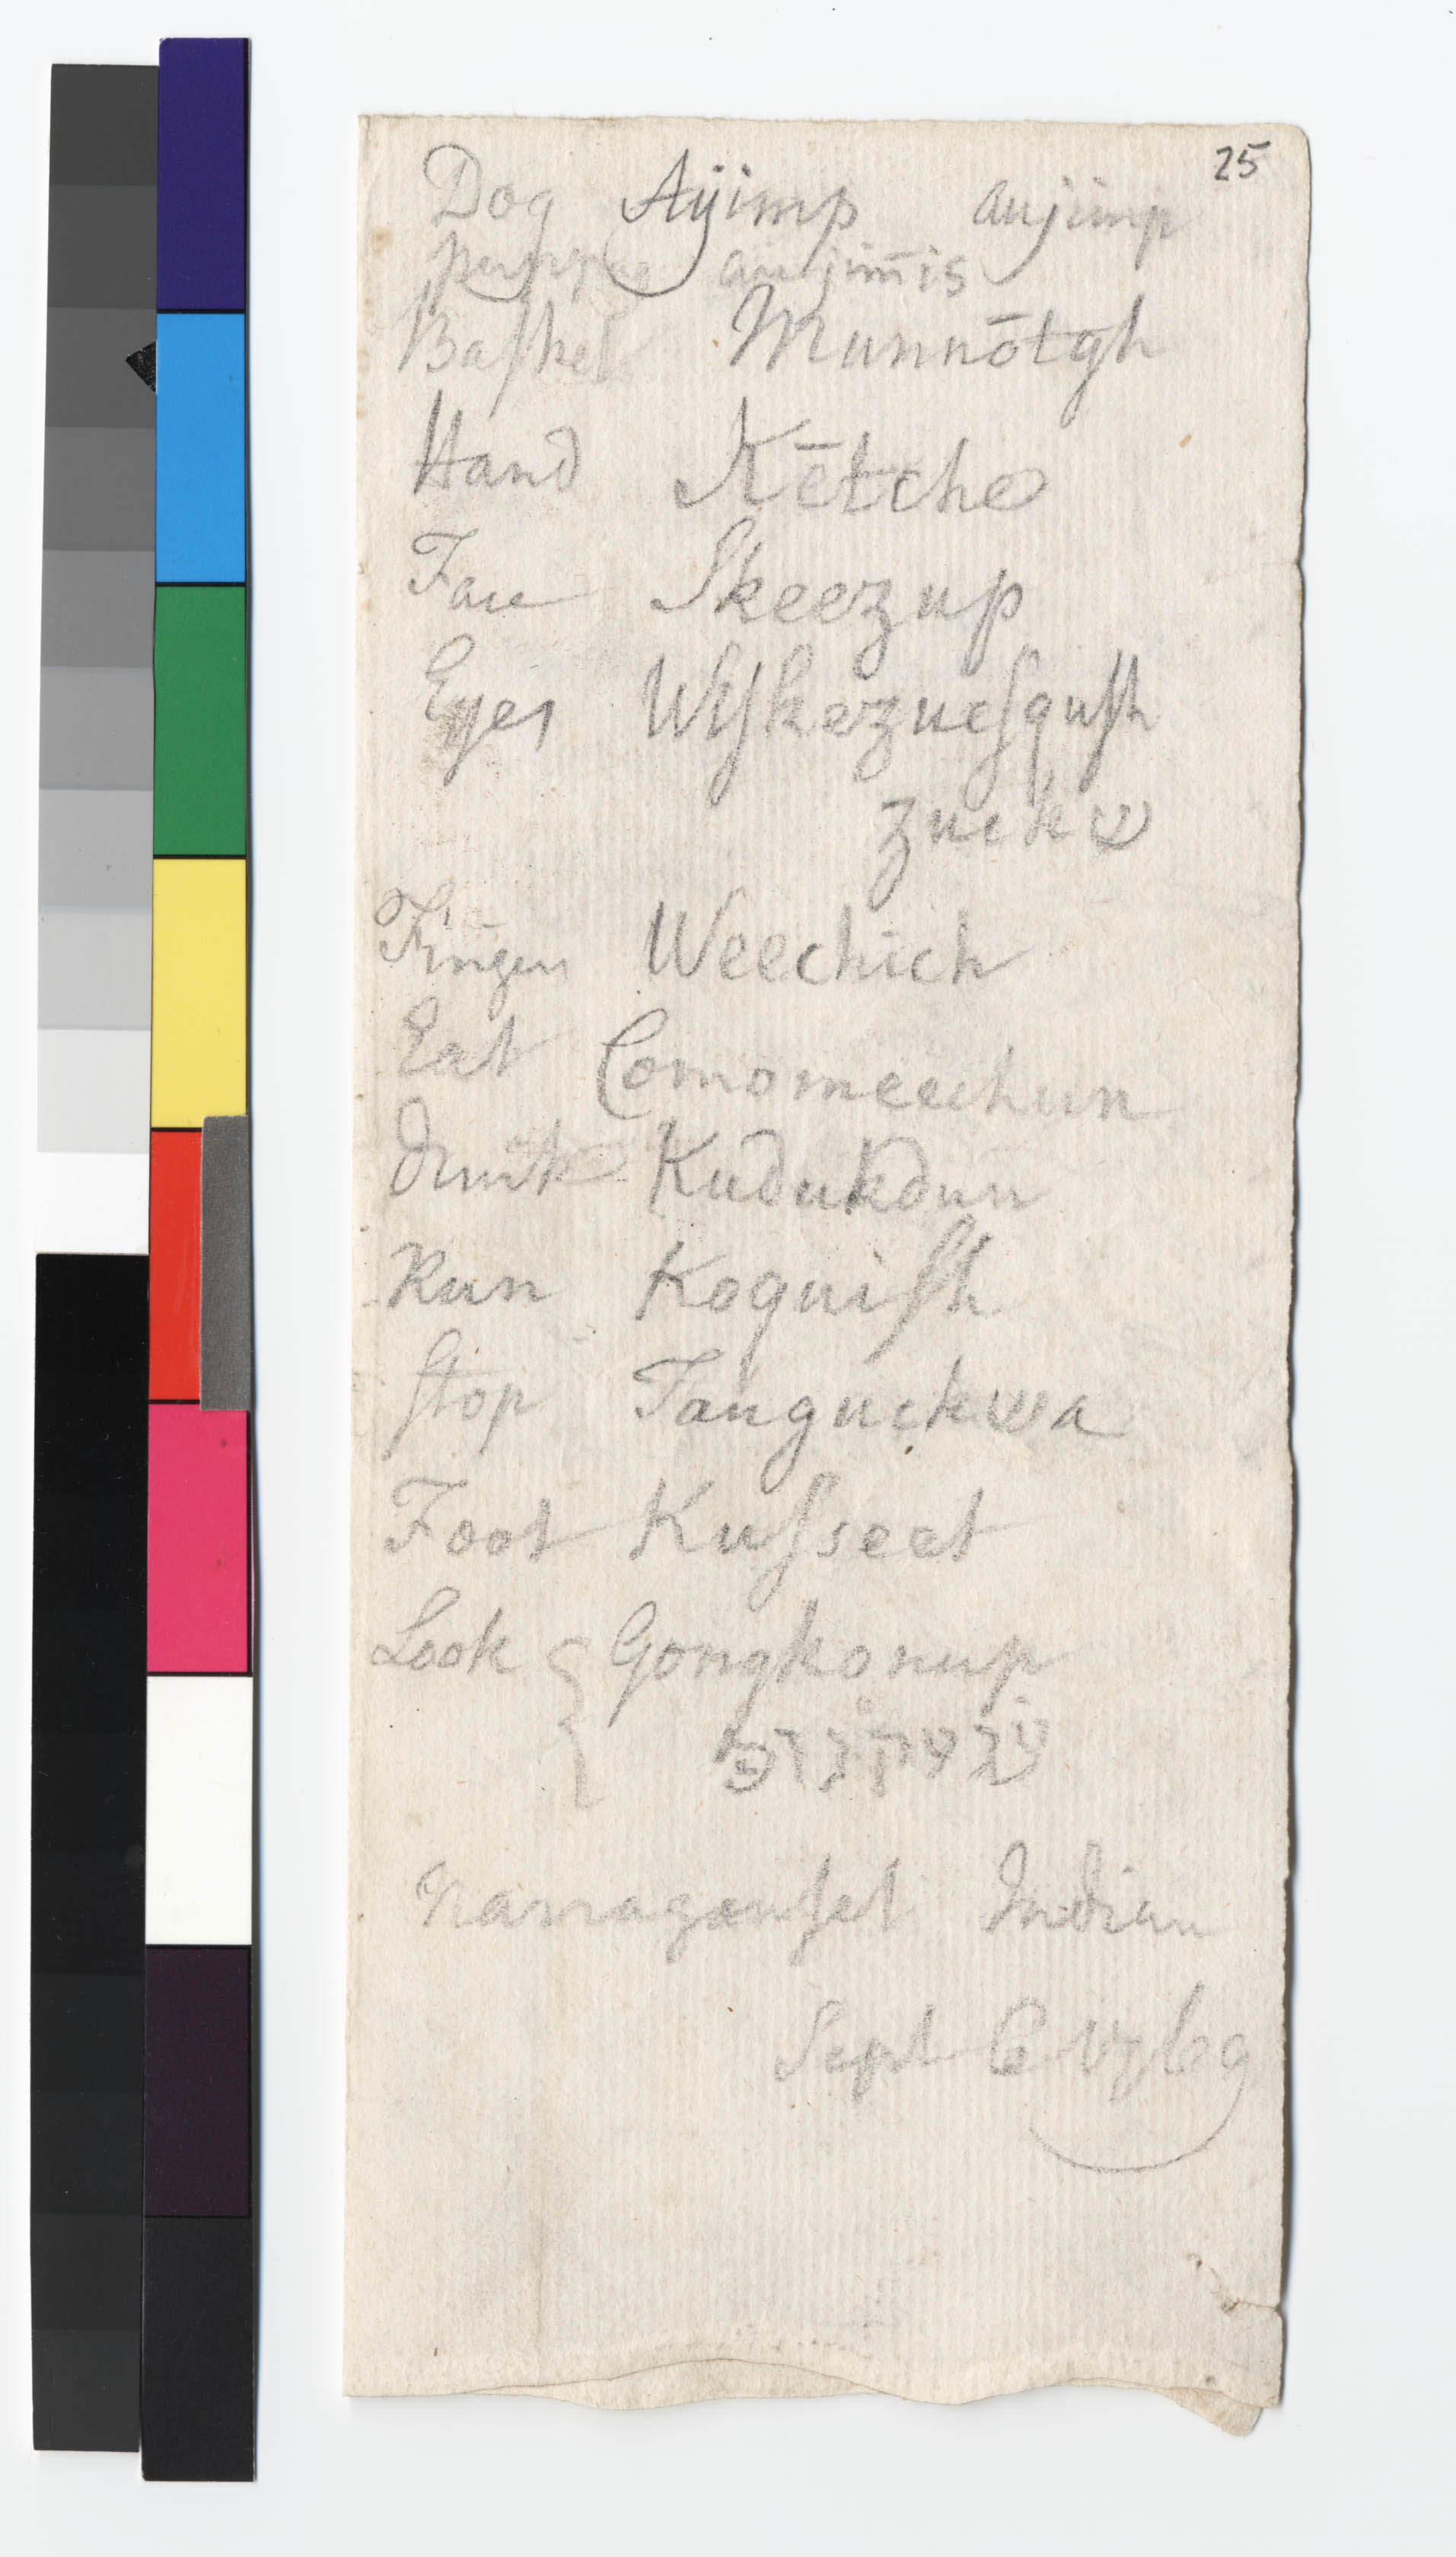 25
Dog Ayimp aujimp
puppee aujim̄is
Baſket Munnōtgh
Hand Kētche
Face Skeezup
Eyes Wſkezueſquſh
zuckw
Fingers Weechich
Eat Comomeechun
Drink Kudukdun
Run Koquiſh
ſtop Tanguckwa
Foot Kuſseet
Look { Gongkonup
Narraganſet Indian
Sept 6 1769